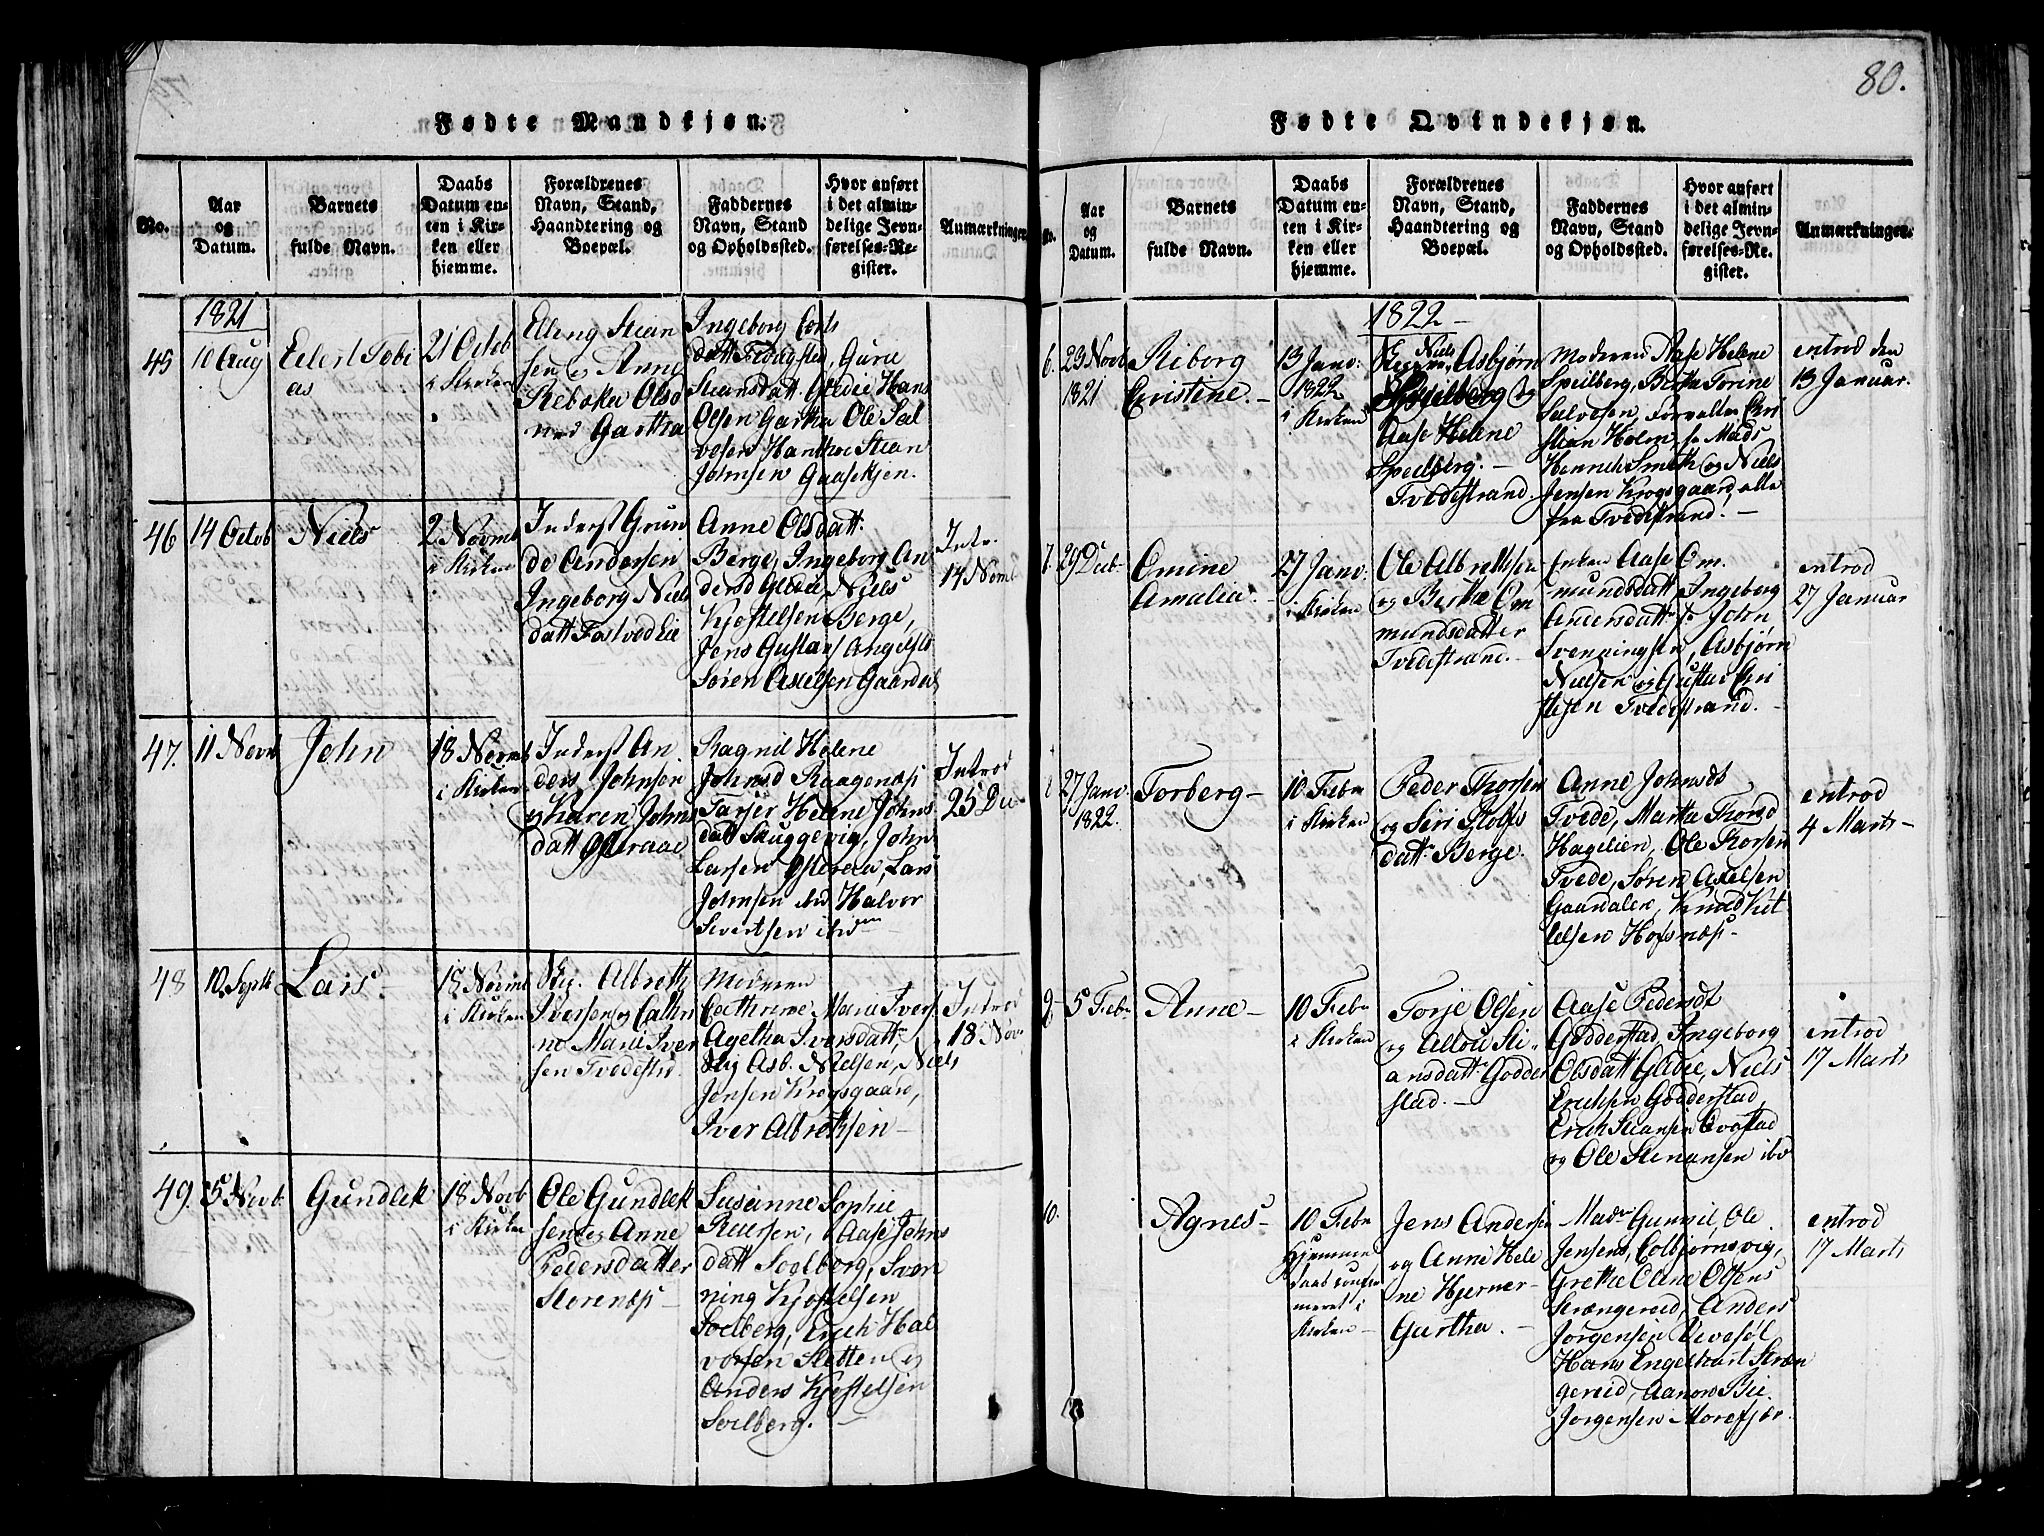 80.
Fødte Mandkjøn.
No.
Aar og Datum.
Barnets fulde Navn.
Daabs Datum enten i Kirken eller hjemme.
Forældrenes Navn, Stand, Haandtering og Boepæl.
Faddernes Navn, Stand og Opholdssted.
Hvor anført i det almindelige Jevnførelses-Register.
Anmærkninger.
1821
45
10 Aug
Eilert Tobi
as
21 Octob
i Kirken
Elleng Stian
sen og Anne
Rebekka Olsd
Gartha
Ingeborg
datt, Gurie
Stiansdatt. Glidie Hans
Olsen Gartha Ole Sal
vesen Stian
Johnsen Gaasekjen.
46
14 Octob
Niels
2 Novmb
i Kirken
Inderst Grun
de Andersen
Ingeborg Niels
datt Fostved Eie
Anne Olsdatt:
Berge, Ingeborg An
dersd Glidie, Niels
Kjostelsen Berge,
Jens Gustafs Angelst.
Søren Axelsen Gaardal
Intr.
14 Novmb
47.
11 Novb
John
18 Novmb
i Kirken
Inderst An
ders Johnsen
og Karen Johns
datt Østeraae
Ragnil Helene
Johnsd Raagenæs
Tarjer Helene Johns
datt Skuggevig, John
Larsen Østeraa, Lars
Johnsen ibid Halvor
Sivertsen ibidem
Introd
25 De
48
10 Septb
Lars.
18 Novmb
i Kirken
Albreth
Iversen og Cathri
ne Marie Iver
sen Tvedestrd.
Moderen
Cathrine Marie Ivers
Agetha Iversdatt:
Asb. Nielsen, Niels
Jensen Krogsgaard,
Iver Albrethsen
Introd
18 Nov
49.
5 Novb.
Gundlek
18 Novb
i Kirken
Ole Gundlek
sen og Anne
Pedersdatter
Storenæs
Susanne Sophie
Reiersen, Aase Johns
datt Soelborg, Sven
ning Kjostelsen
Soelberg, Erich Hal
vorsen Sletten og
Anders Kjostelsen
Soelberg.
Fødte Qvindekjøn.
No.
Aar og Datum.
Barnets fulde Navn.
Daabs Datum enten i Kirken eller hjemme.
Forældrenes Navn, Stand, Haandtering og Boepæl.
Faddernes Navn, Stand og Opholdssted.
Hvor anført i det almindelige Jevnførelses-Register.
Anmærkninger.
1822
6.
23 Novb
1821
Riborg
Cristene.
13 Janv:
1822
i Kirken
Niels
Asbjørn
Speilberg og
Aase Helene
Speilberg.
Tvedestrand
Moderen Aase Helene
Speilberg, Berthe Torine
Salvesen, Forvalter Cri
stian Holm, Mads
Henrich Smith og Niels
Jensen Krogsgaard, alle
fra Tvedestrand.
entrod den
13 Januar.
7.
29 Decb
Omine
Amalia.
27 Janv:
i Kirken
Ole Albrethsen
og Berthe Om
mundsdatter
Tvedestrand.
Enken Aase Om
mundsdatt, Ingeborg
Andersdatt: John
Svenningsen, Asbjørn
Nielsen og Gustav Cri
stisen Tvedestrand.
entrod
27 Januar
27 Janv:
1822.
Torberg
10 Febr
i Kirken
Peder Thorsen
og Siri Rolfs
datt: Berge.
Anne Johnsdt
Tvede, Martha Thorsd
Hagelien, Ole Thorsen
Tvede, Søren Axelsen
Gaardalen, Knud Ket
telsen Hofsnæs
entrod
4 Marts
9.
5 Febr
Anne
10 Febr
i Kirken
Torje Olsen
og Sti
ansdatt: Godder
stad.
Aase Pedersdt
Godderstad, Ingeborg
Olsdatt Glidie, Niels
Erichsen Godderstad,
Erich Stiansen
og Ole Stenansen ibd
entrod
17 Marts
10.
Agnes
10 Febr
Hjemme
daab confir
meret i
Kirken
Jens Andersen
og Anne Hele
ne Hjerner
Gartha.
Madm Gunnil, Ole
Jensens, Colbjørnsvig,
Grethe Eline Olsens
Strængereid, Anders
Jorgensen Vevesøl
Hans Engelhart Stræn
gereid, Aanon
Jorgensen Morefjær.
entrod
17 Marts